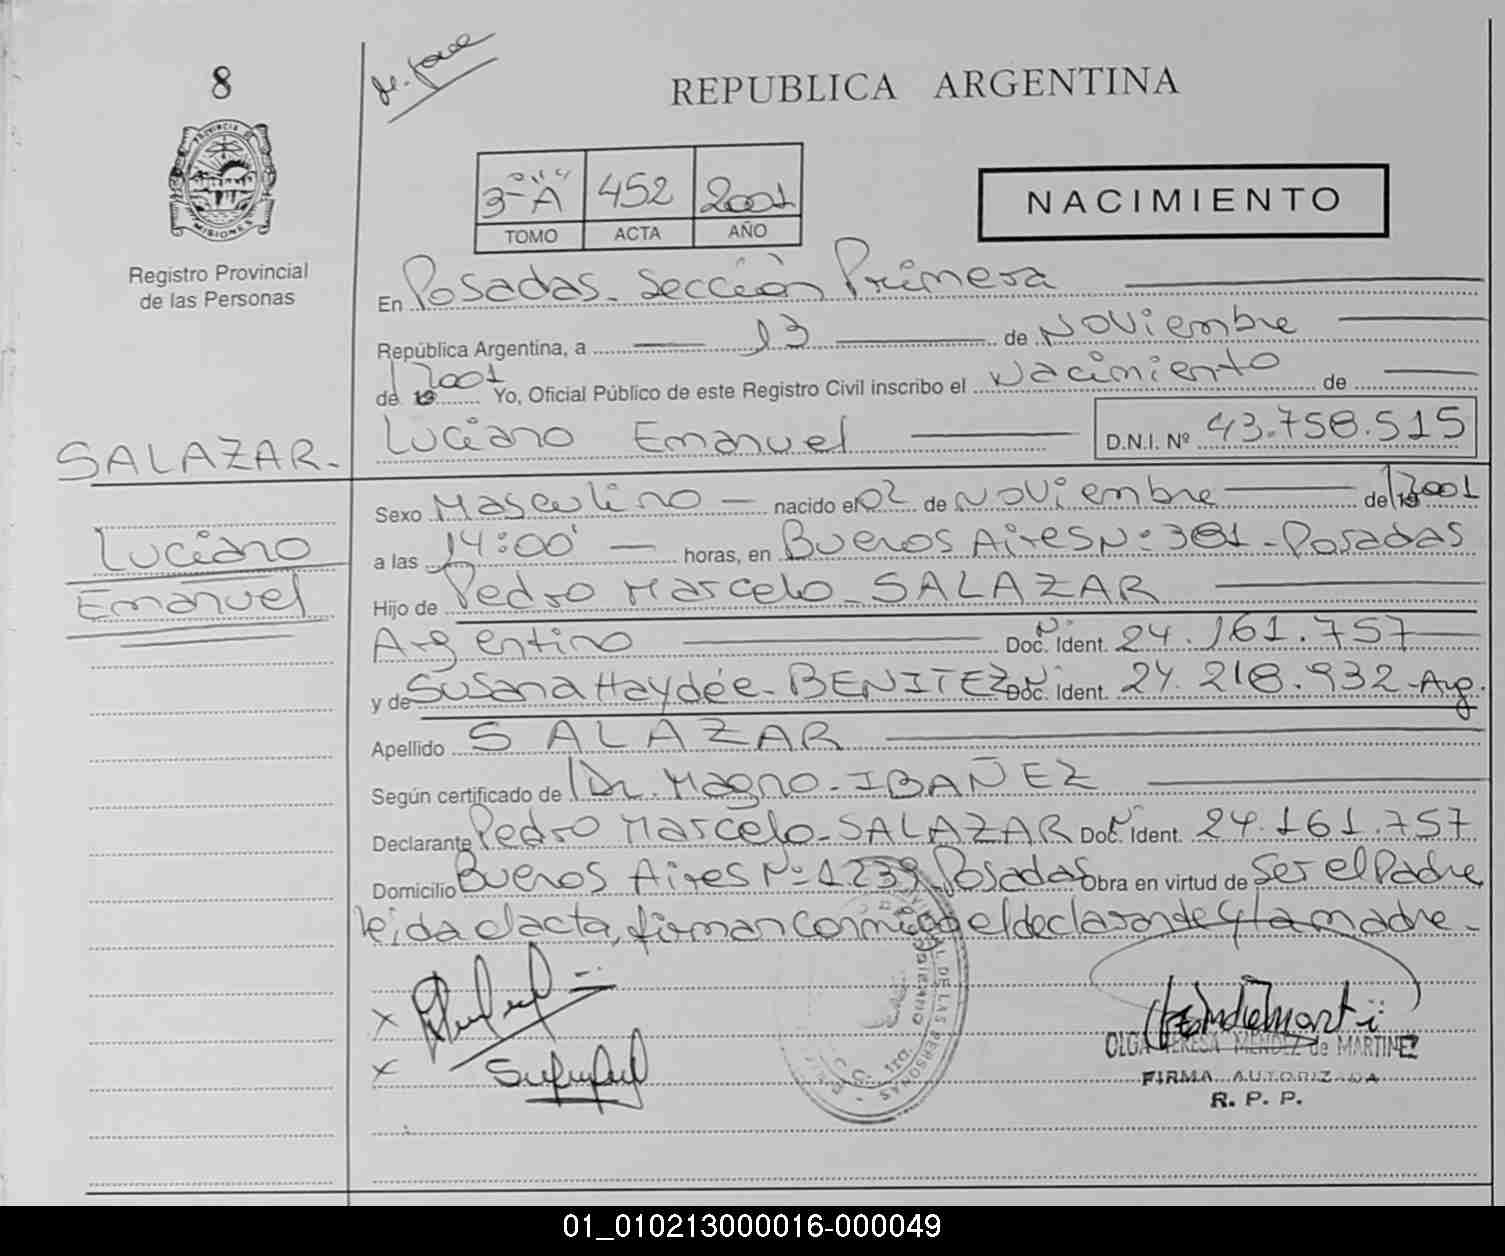 8
REPUBLICA ARGENTINA
PROVINCIA DE
MISIONES
Registro Provincial
de las Personas
3-"A" 452 2001
TOMO ACTA AÑO
NACIMIENTO
En Posadas. Sección Primera
República Argentina, a 13 de Noviembre
de 2001 Yo, Oficial Público de este Registro Civil inscribo el Nacimiento de
SALAZAR.
Luciano Emanuel D.N.I. Nº 43.758.515
Luciano
Emanuel
Sexo Masculino nacido el 02 de Noviembre de 2001
a las 14:00' horas, en Buenos Aires Nº 381 - Posadas
Hijo de Pedro Marcelo SALAZAR
Argentino Doc. Ident. 24.161.757
y de Susana Haydée - BENITEZ Doc. Ident. 24.218.932 - Arg.
Apellido SALAZAR
Según certificado de Dr. Magno - IBAÑEZ
Declarante Pedro Marcelo - SALAZAR Doc. Ident. 24.161.757
Domicilio Buenos Aires Nº 1239 Posadas Obra en virtud de Ser el Padre
leida el acta, firman conmigo el declarante y la madre.
OLGA TERESA MENDEZ de MARTINEZ
FIRMA AUTORIZADA
R. P. P.
01_010213000016-000049